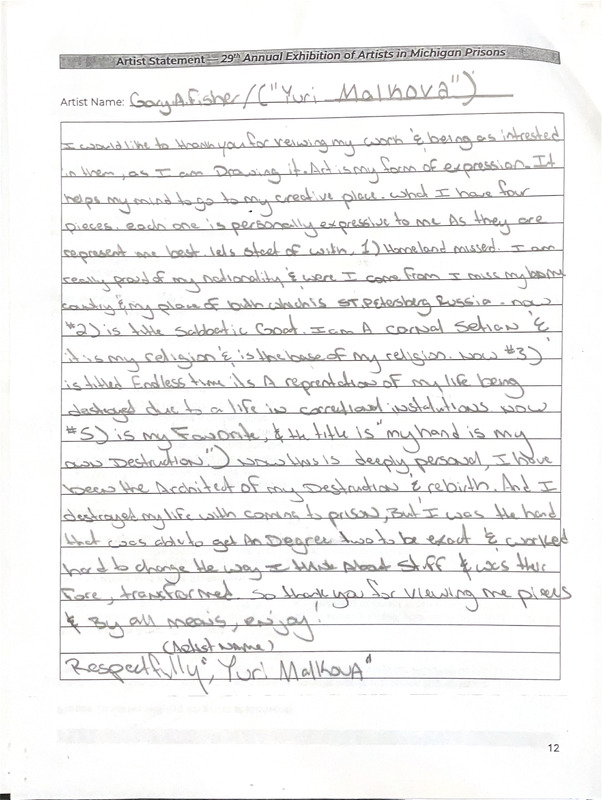 Artist Statement — 29th Annual Exhibition of Artists in Michigan Prisons
Artist Name: Gary A. Fisher / ("Yuri Malkova")
I would like to thank you for veiwing my work & being as intrested
in them, as I am Drawing it. Art is my form of expression. It
helps my mind to go to my creative place. what I have four
pieces. each one is personally expressive to me As they are
represent me best. lets start of with, 1) Homeland missed. I am
really proud of my nationality & were I come from I miss my home
country & my place of birth which is ST. Petersberg Russia. now
#2) is title Sabbatic Goat. I am A carnal Setian &
it is my religion & is the base of my religion. now #3)
is titled Endless time its A reprentation of my life being
destroyed due to a life in correctional instalutions now
#5) is my Favorite, & the title is "my hand is my
own Destruction".) Now this is deeply personal, I have
been the Architect of my Destruction & rebirth. And I
destroyed my life with coming to prison, But I was the hand
that was able to get An Degree two to be exact & worked
hard to change the way I think About Stuff & was their
fore, transformed. So thank you for viewing me pieces
& By all means, enjoy!
(Artist Name)
Respectfully", Yuri Malkova"
12